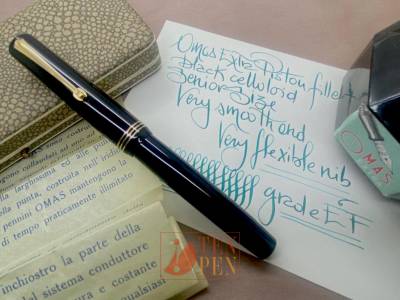 Omas Extra Piston filler
black celluloid
Senior Size
Very smooth and
Very flexible nib
grade EF
OMAS
largherissima ed alla
punta, costruita nell'iridi
pennini OMAS mantengono la
di tempo praticamente illimitato
inchiostro la parte della
sistema conduttore
e costante
qualsiasi
TEA
PEN